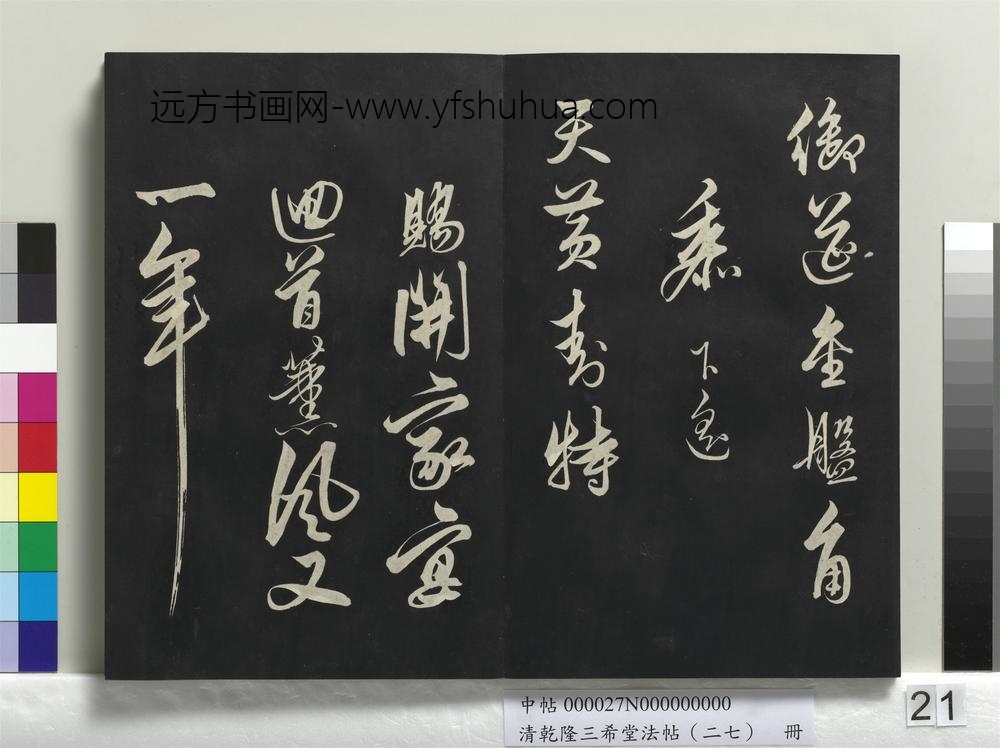 远方书画网-www.yfshuhua.com
御筵金盤角
黍下遙
天黃封特
賜開家宴
迴首薰風又
一年
中帖 000027N000000000
清乾隆三希堂法帖（二七） 冊
21